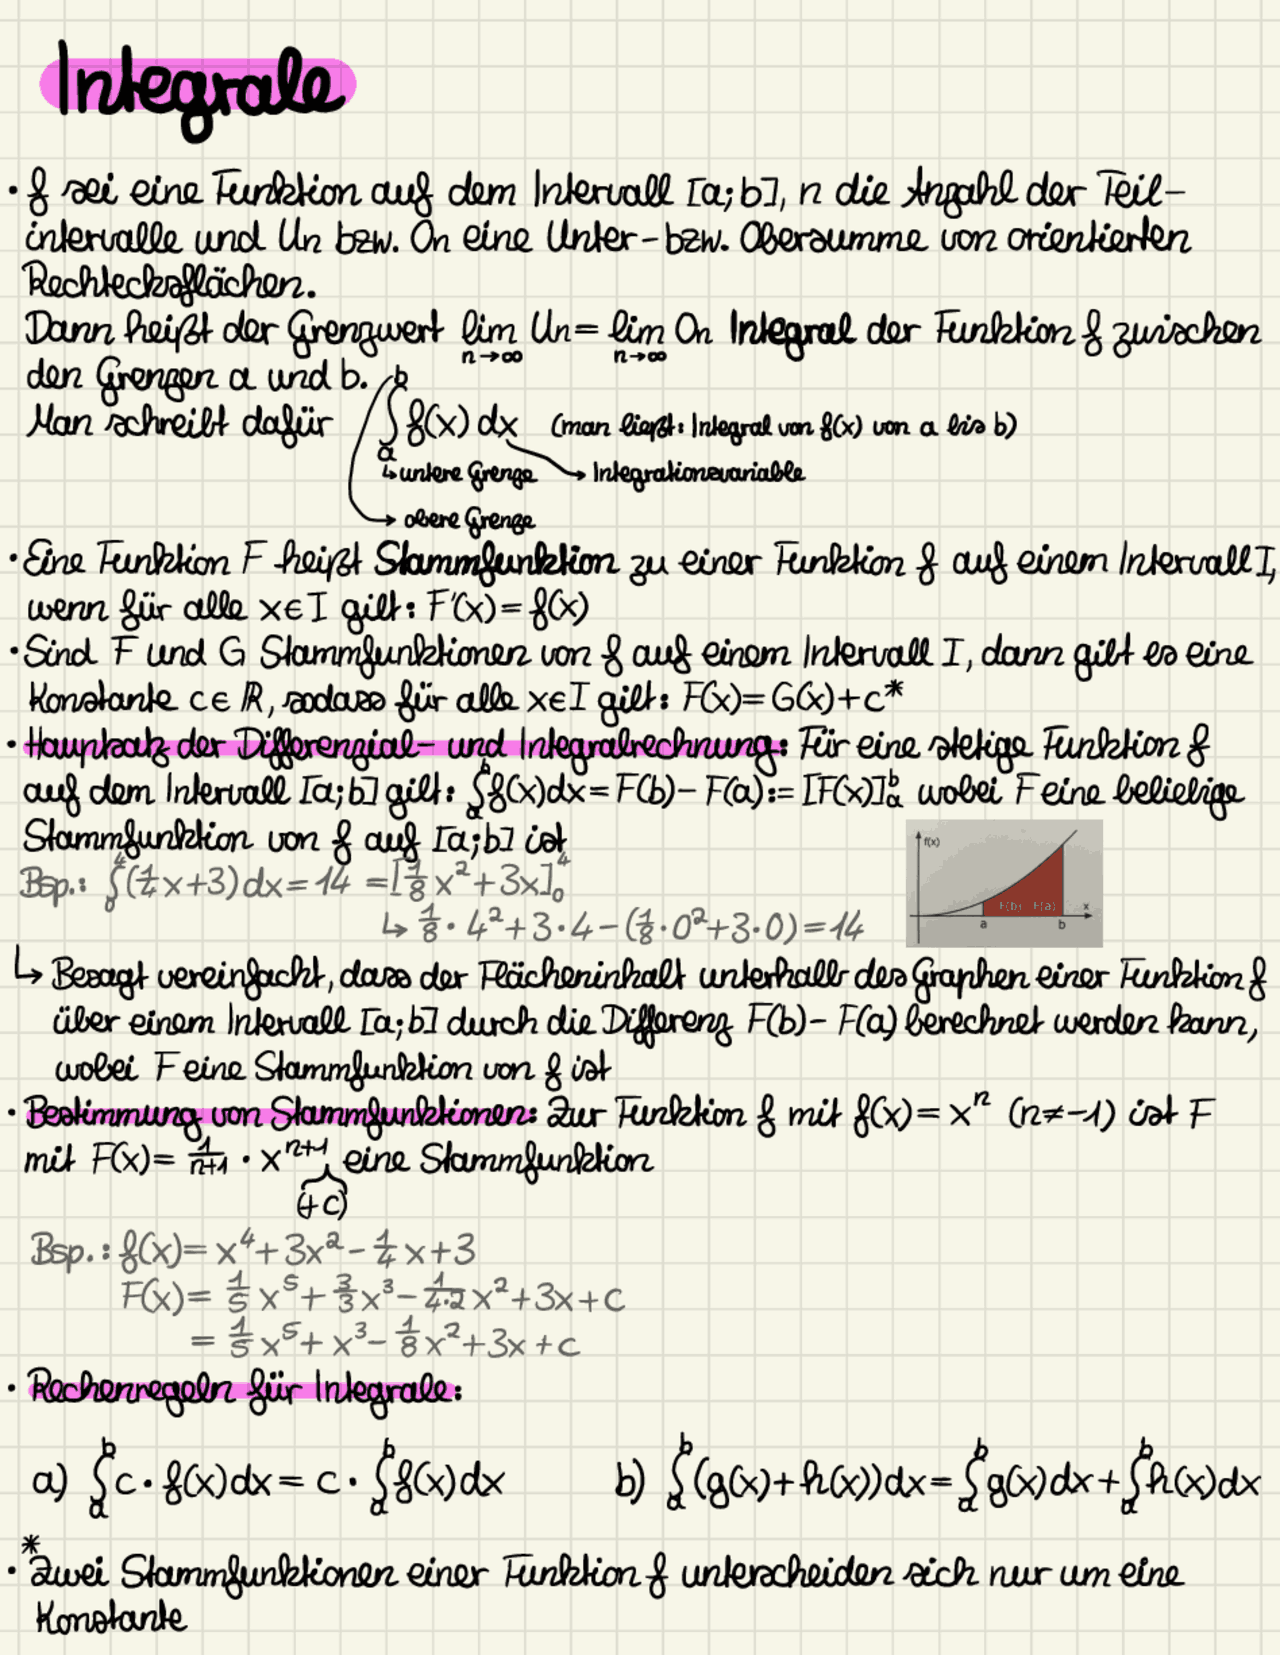 Integrale
• f sei eine Funktion auf dem Intervall [a;b], n die Anzahl der Teil-
intervalle und Un bzw. On eine Unter- bzw. Obersumme von orientierten
Rechtecksflächen.
Dann heißt der Grenzwert lim n→∞ Un = lim n→∞ On Integral der Funktion f zwischen
den Grenzen a und b.
Man schreibt dafür ∫ₐᵇ f(x) dx (man ließt: Integral von f(x) von a bis b)
↳ untere Grenze → Integrationsvariable
→ obere Grenze
• Eine Funktion F heißt Stammfunktion zu einer Funktion f auf einem Intervall I,
wenn für alle x∈I gilt: F'(x) = f(x)
• Sind F und G Stammfunktionen von f auf einem Intervall I, dann gibt es eine
Konstante c∈ℝ, sodass für alle x∈I gilt: F(x) = G(x) + c*
• Hauptsatz der Differenzial- und Integralrechnung: Für eine stetige Funktion f
auf dem Intervall [a;b] gilt: ∫ₐᵇ f(x)dx = F(b) - F(a) := [F(x)]ₐᵇ wobei F eine beliebige
Stammfunktion von f auf [a;b] ist
Bsp.: ∫₀⁴ (1/4 x+3) dx = 14 = [1/8 x² + 3x]₀⁴
↳ 1/8 · 4² + 3 · 4 - (1/8 · 0² + 3 · 0) = 14
f(x)
F(b) F(a)
x
a b
↳ Besagt vereinfacht, dass der Flächeninhalt unterhalb des Graphen einer Funktion f
über einem Intervall [a;b] durch die Differenz F(b) - F(a) berechnet werden kann,
wobei F eine Stammfunktion von f ist
• Bestimmung von Stammfunktionen: Zur Funktion f mit f(x) = xⁿ (n≠-1) ist F
mit F(x) = 1/(n+1) · xⁿ⁺¹ eine Stammfunktion
(+c)
Bsp.: f(x) = x⁴ + 3x² - 1/4 x + 3
F(x) = 1/5 x⁵ + 3/3 x³ - 1/(4·2) x² + 3x + c
= 1/5 x⁵ + x³ - 1/8 x² + 3x + c
• Rechenregeln für Integrale:
a) ∫ₐᵇ c · f(x) dx = c · ∫ₐᵇ f(x) dx b) ∫ₐᵇ (g(x) + h(x)) dx = ∫ₐᵇ g(x) dx + ∫ₐᵇ h(x) dx
*
• Zwei Stammfunktionen einer Funktion f unterscheiden sich nur um eine
Konstante